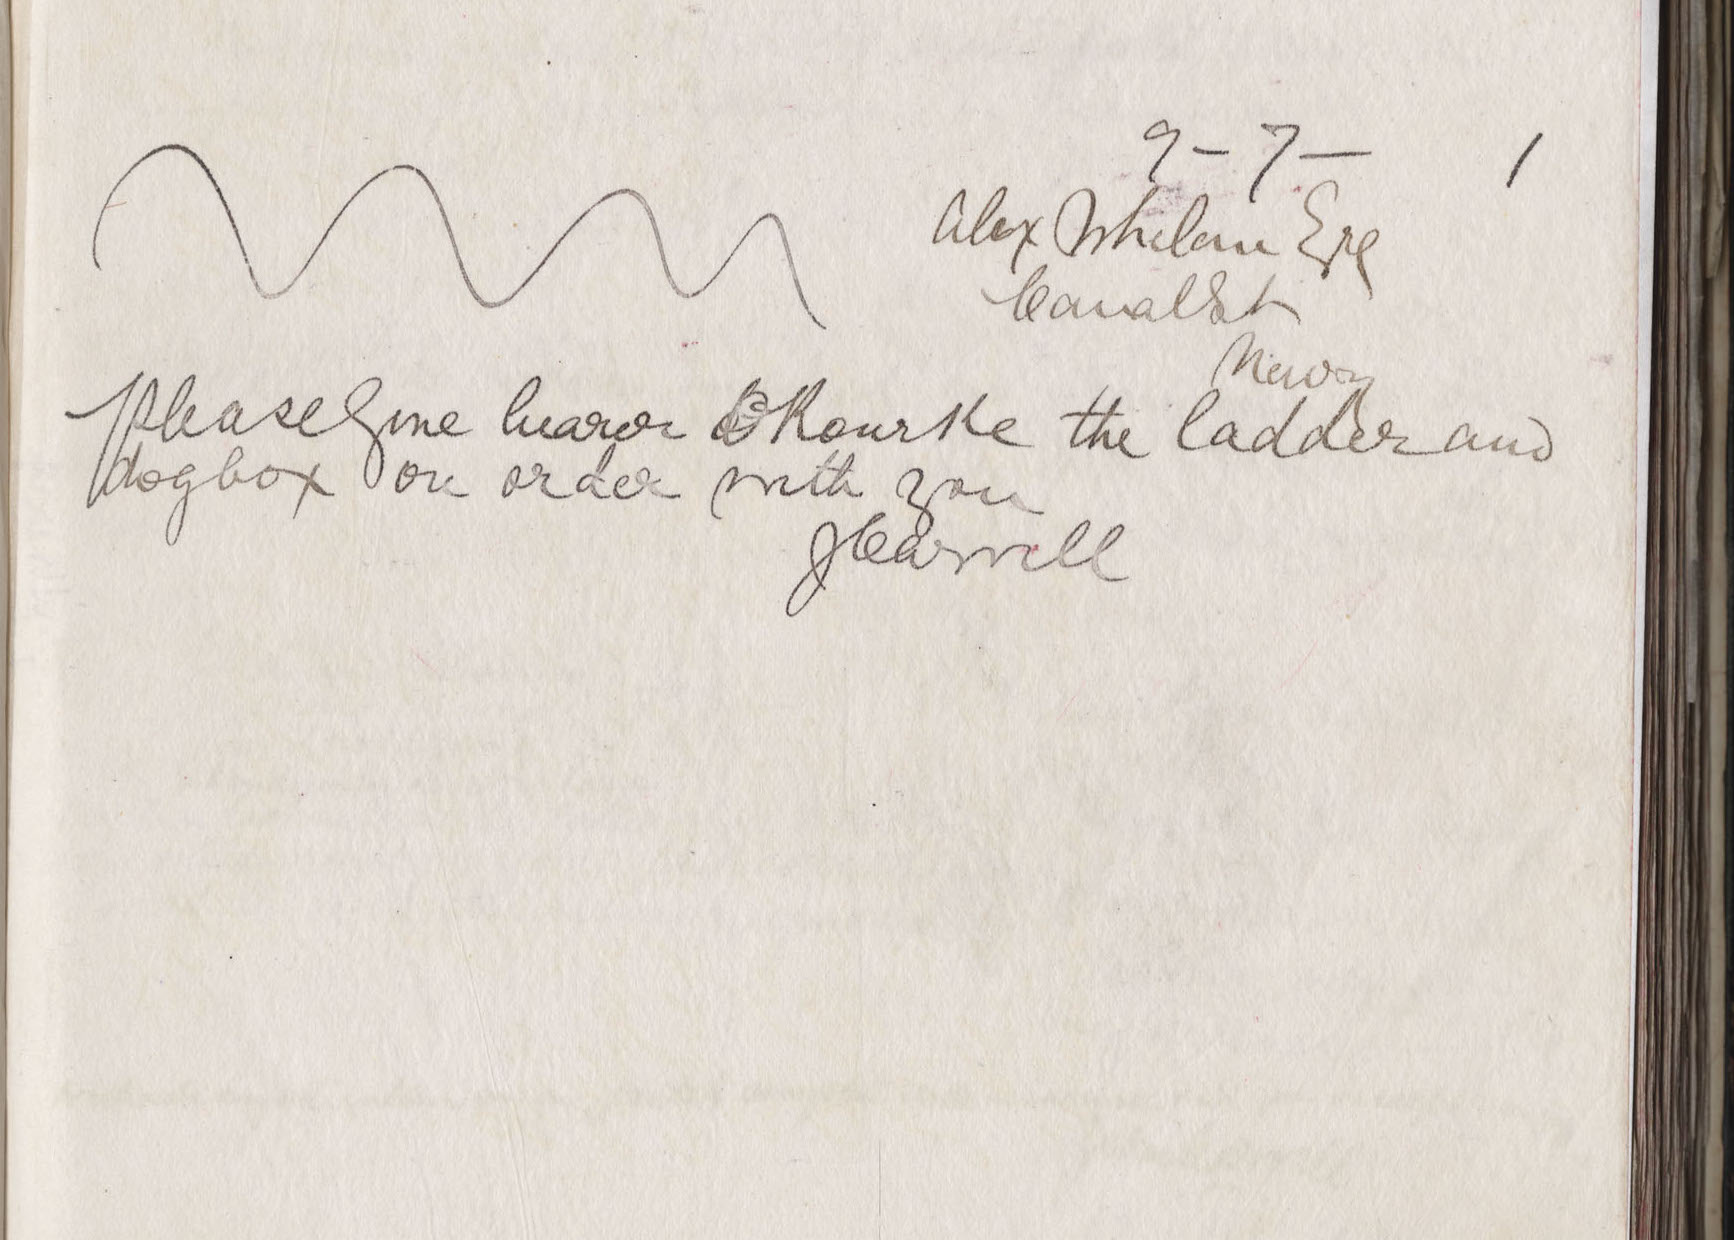 9-7- 1
Alex Whelan Esq
Canal St
Newry
Please Give bearer O'Rourke the ladder and
dogbox on order with you
J Carvill